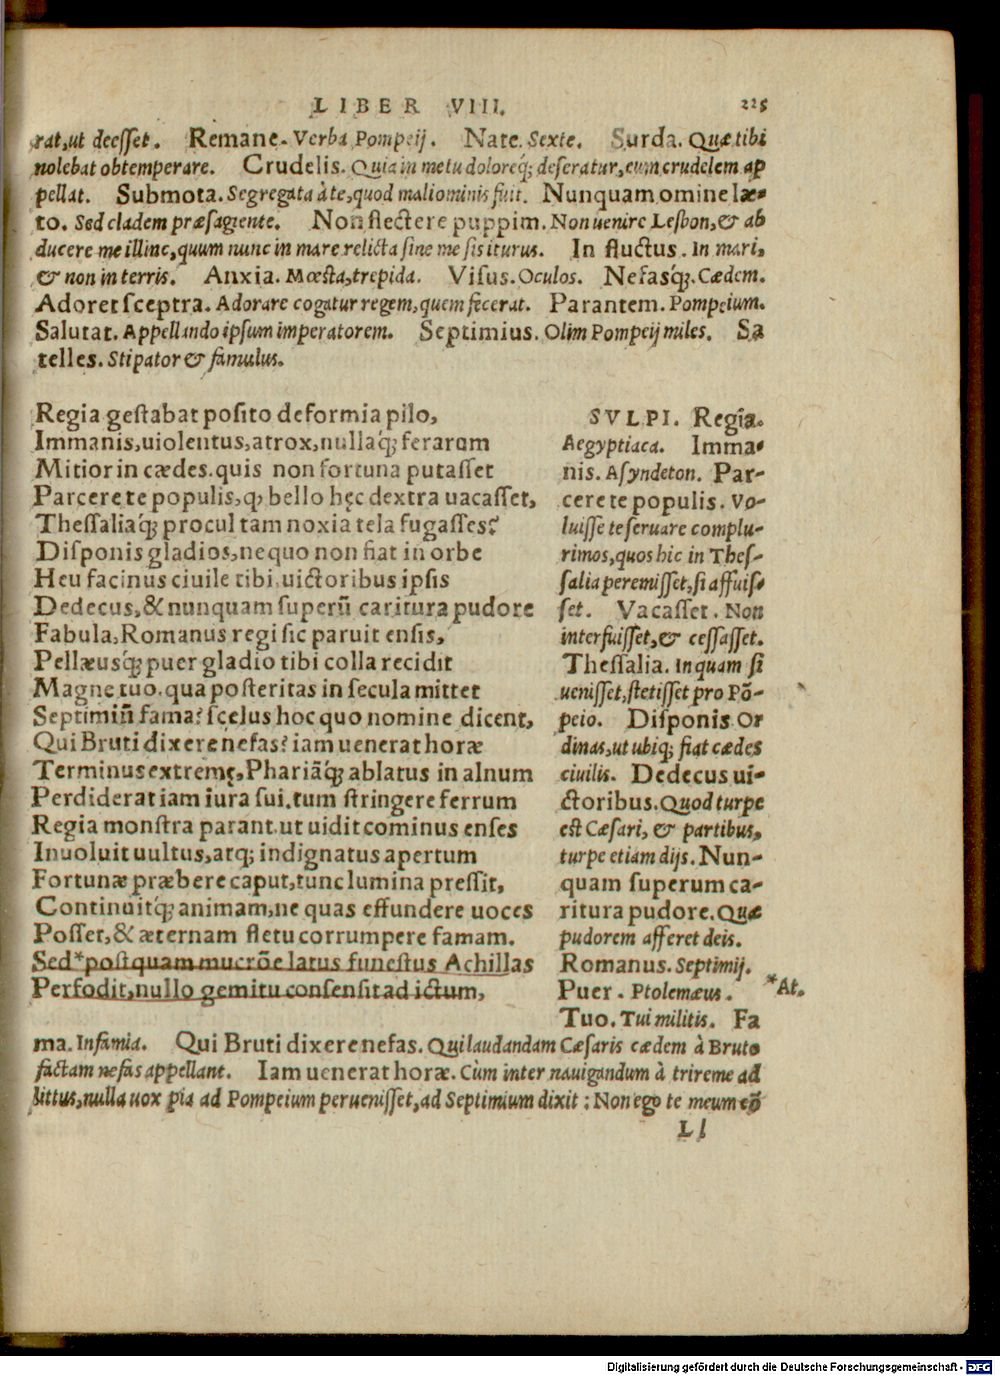 LIBER VIII. 225
rat,ut deesset. Remane. Verba Pompeij. Nate. Sexte. Surda. Quæ tibi
nolebat obtemperare. Crudelis. Quia in metu doloreq́; deseratur, eum crudelem ap
pellat. Submota. Segregata à te, quod mali ominis fuit. Nunquam omine læ-
to. Sed cladem præsagiente. Non flectere puppim. Non uenire Lesbon, & ab
ducere me illinc, quum nunc in mare relicta sine me sis iturus. In fluctus. In mari,
& non in terris. Anxia. Mœsta, trepida. Visus. Oculos. Nefasq́;. Cædem.
Adoret sceptra. Adorare cogatur regem, quem fecerat. Parantem. Pompeium.
Salutat. Appellando ipsum imperatorem. Septimius. Olim Pompeij miles. Sa
telles. Stipator & famulus.
Regia gestabat posito deformia pilo,
Immanis,uiolentus,atrox,nullaq́; ferarum
Mitior in cædes.quis non fortuna putasset
Parcere te populis,ꝙ bello hęc dextra uacasset,
Thessaliaq́; procul tam noxia tela fugasses?
Disponis gladios,nequo non fiat in orbe
Heu facinus ciuile tibi.uictoribus ipsis
Dedecus,& nunquam superũ caritura pudore
Fabula,Romanus regi sic paruit ensis,
Pellæusq́; puer gladio tibi colla recidit
Magne tuo.qua posteritas in secula mittet
Septimiũ fama? scelus hoc quo nomine dicent,
Qui Bruti dixere nefas? iam uenerat horæ
Terminus extremę,Phariãq́; ablatus in alnum
Perdiderat iam iura sui.tum stringere ferrum
Regia monstra parant.ut uidit cominus enses
Inuoluit uultus,atq; indignatus apertum
Fortunæ præbere caput,tunc lumina pressit,
Continuitq́; animam,ne quas effundere uoces
Posset,& æternam fletu corrumpere famam.
Sed*postquam mucrõe latus funestus Achillas
Perfodit,nullo gemitu consensit ad ictum,
SVLPI. Regia.
Aegyptiaca. Imma-
nis. Asyndeton. Par-
cere te populis. Vo-
luisse te seruare complu-
rimos,quos hic in Thes-
salia peremisset,si affuis-
set. Vacasset. Non
interfuisset,& cessasset.
Thessalia. In quam si
uenisset,stetisset pro Põ-
peio. Disponis Or
dinas,ut ubiq; fiat cædes
ciuilis. Dedecus ui-
ctoribus. Quod turpe
est Cæsari, & partibus,
turpe etiam dijs. Nun-
quam superum ca-
ritura pudore. Quæ
pudorem afferet deis.
Romanus. Septimij.
Puer. Ptolemæus. *At.
Tuo. Tui militis. Fa
ma. Infamia. Qui Bruti dixere nefas. Qui laudandam Cæsaris cædem à Bruto
factam nefas appellant. Iam uenerat horæ. Cùm inter nauigandum à trireme ad
littus,nulla uox pia ad Pompeium peruenisset,ad Septimium dixit : Non ego te meum
Ll
Digitalisierung gefördert durch die Deutsche Forschungsgemeinschaft - DFG